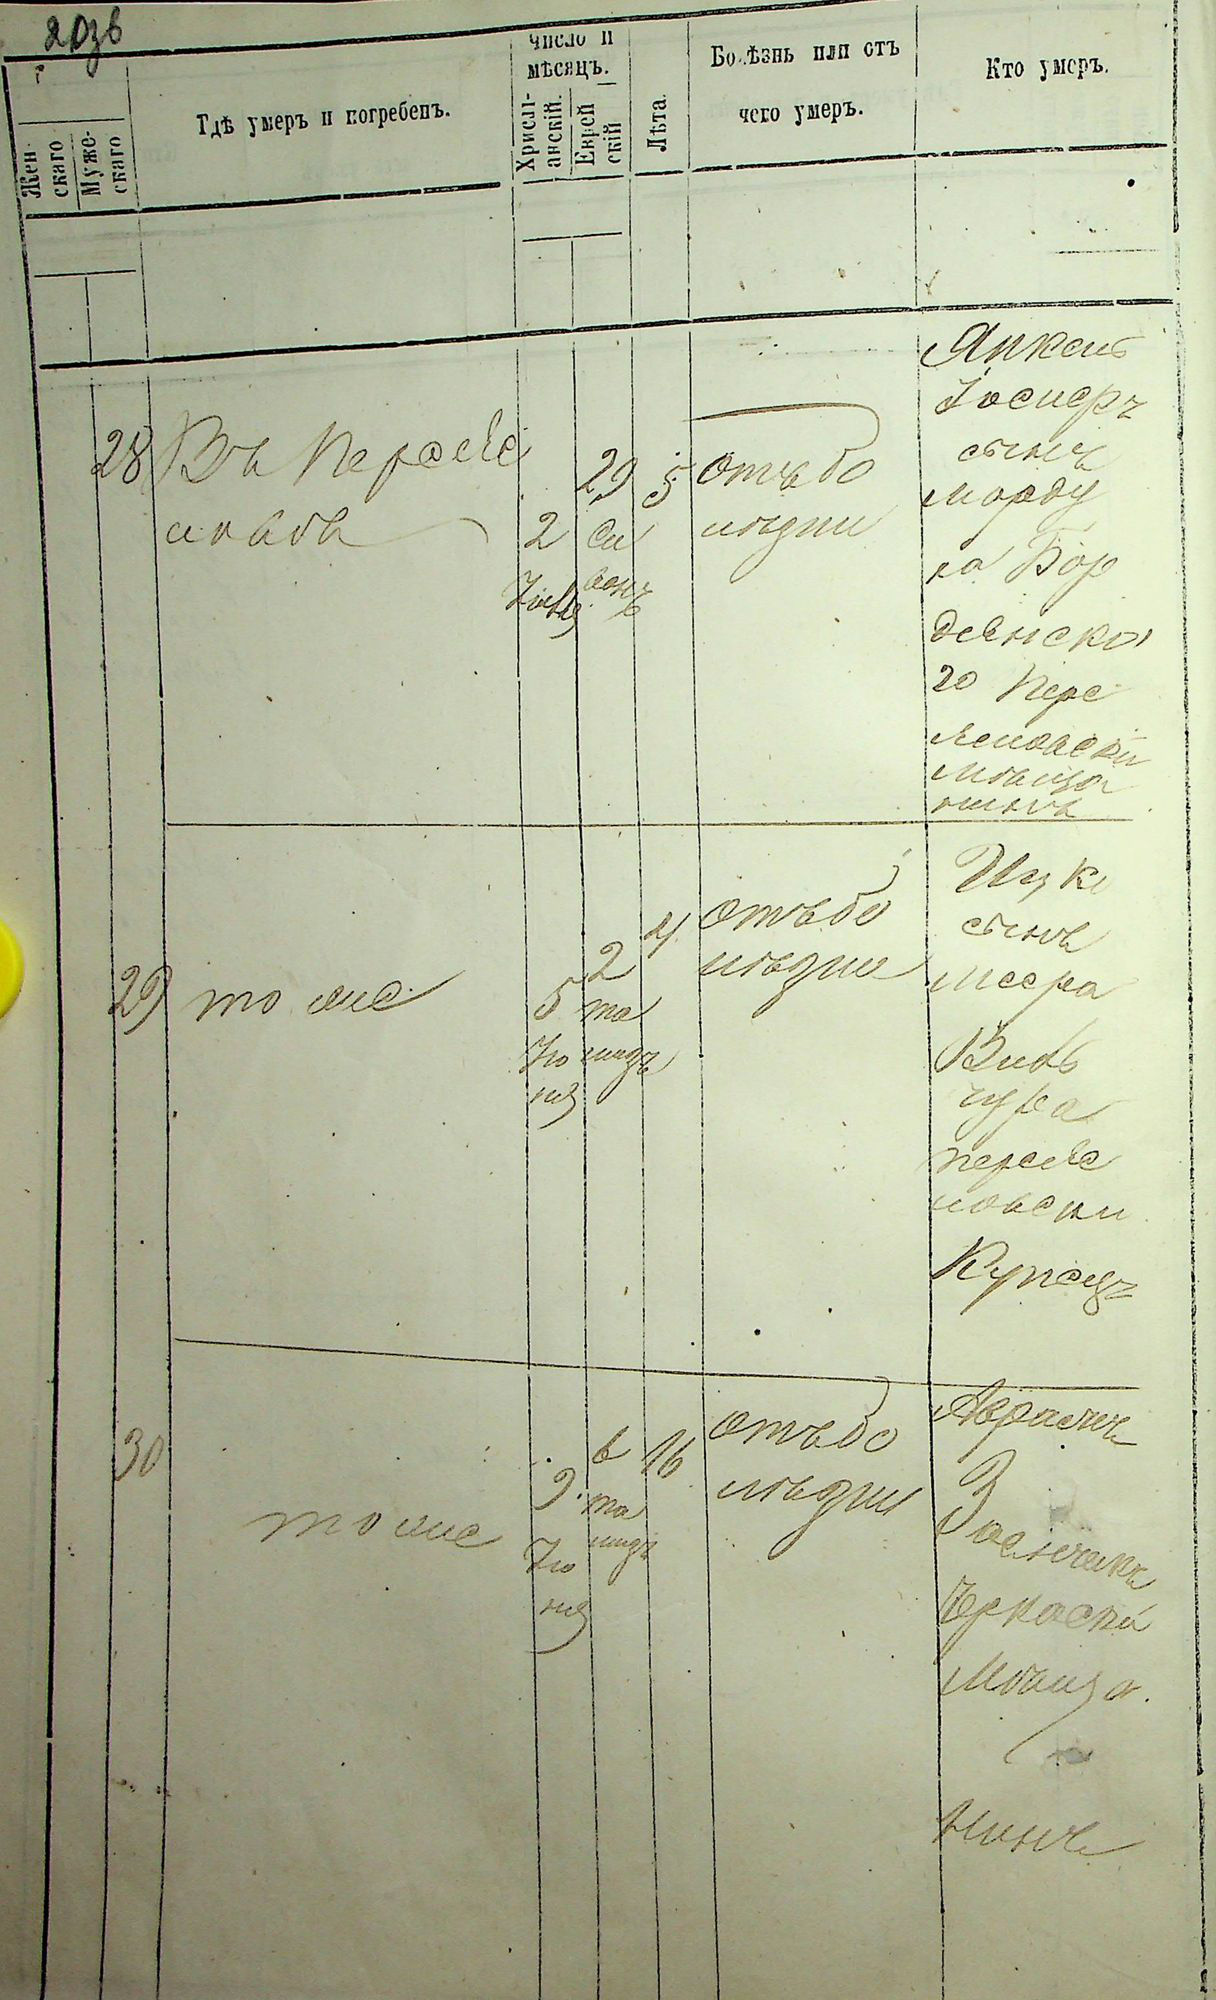 Жен-
скаго
Муже-
скаго
Гдѣ умеръ и погребенъ.
Число и
мѣсяцъ.
Христі-
анскій.
Еврей
скій
Лѣта.
Болѣзнь или отъ
чего умеръ.
Кто умеръ.
28
Въ Переяс
ловѣ
2
Іюня
29
Си
ванъ
5
отъ бо
лѣзни
Янкель
Іосифъ
сынъ
Морду
ха Бор
Пере
яславски
мѣща
нинъ
29
тоже
5
Ію
ня
2
та
мизъ
4
отъ бо
лѣзни
Ицко
сынъ
Меера
Вин
чура
переяс
ловски
Купецъ
30
тоже
9
Ію
ня
6
та
мизъ
16
отъ бо
лѣзни
Абрамъ
Черкаски
Мѣща
нинъ